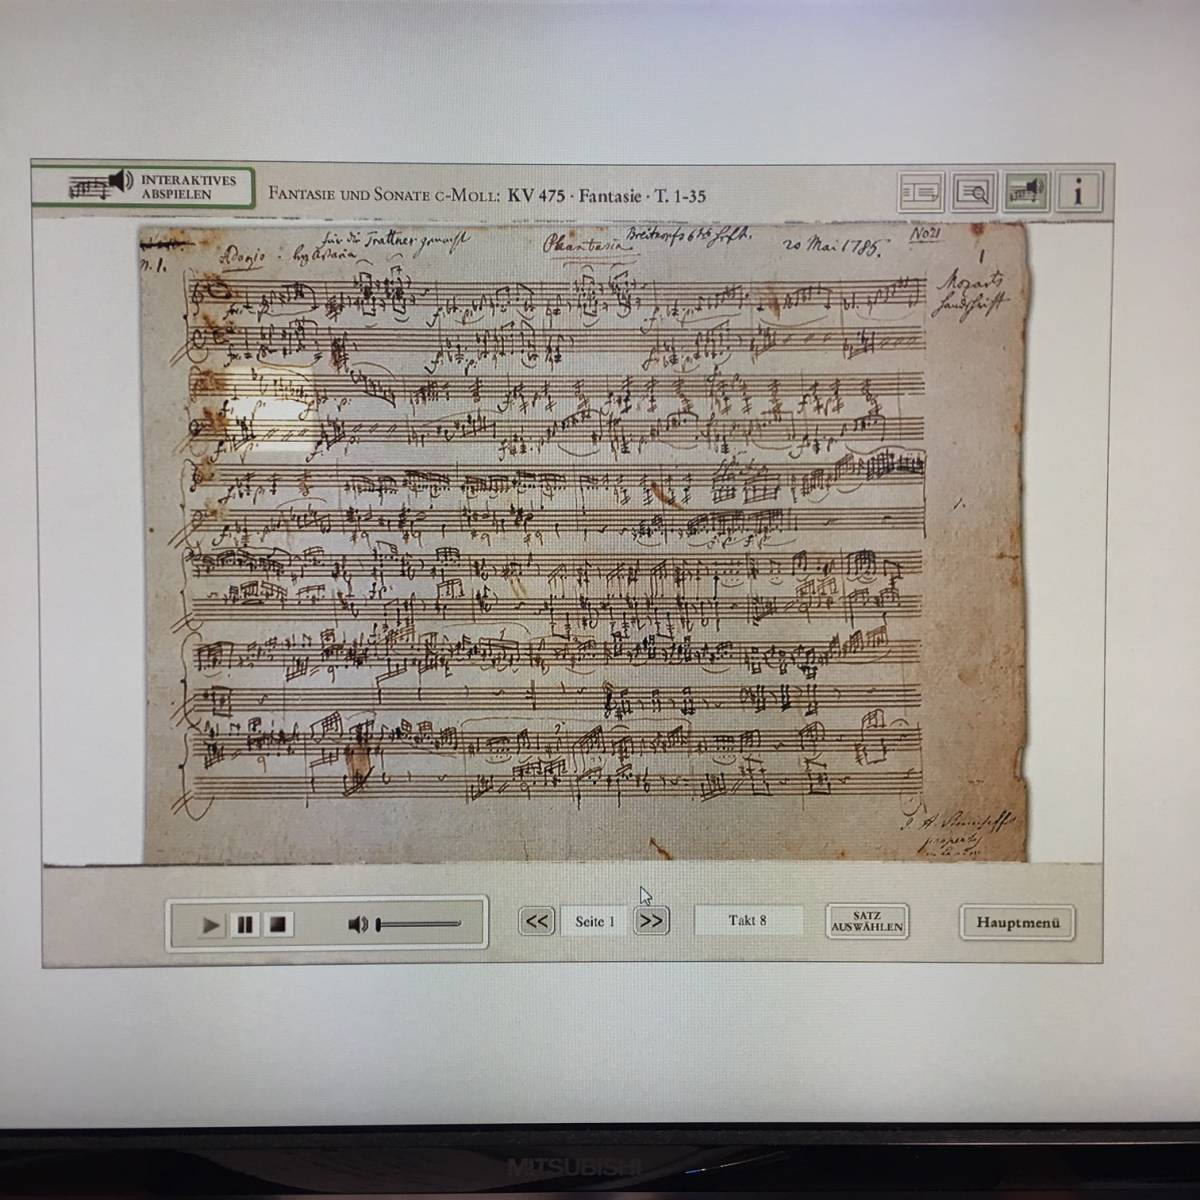 INTERAKTIVES
ABSPIELEN
FANTASIE UND SONATE C-MOLL: KV 475 · Fantasie · T. 1-35
für die Trattner gemacht
Phantasia
Breitkopfs 6tes Heft.
20 Mai 1785.
No21
1
n. 1.
Adagio
Mozarts
Handschrift
property
Seite 1
Takt 8
SATZ
AUSWÄHLEN
Hauptmenü
MITSUBISHI